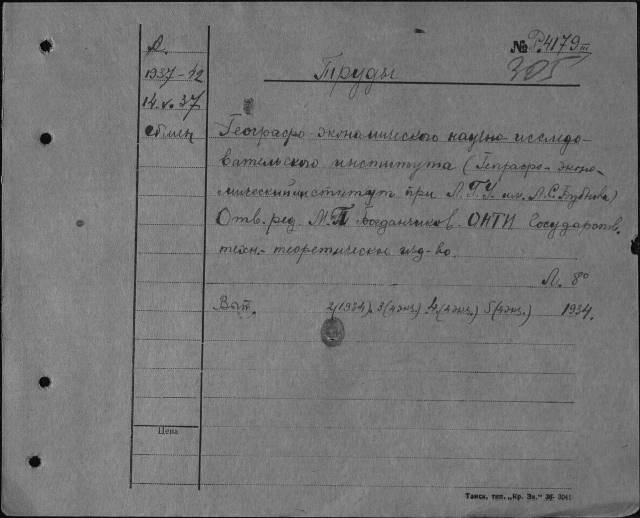 А.
1937-42
14.V.37
обмен
№ Р.4179 III
305
Труды
Географо-экономического научно-исследо-
вательского института (Географо-эконо-
мический институт при Л.Г.У. им. А.С. Бубнова)
Отв. ред. М.П. Богданчиков. ОНТИ Государств.
техн.-теоретическое изд-во.
Л. 8°
Вып. 2(1934). 3(4 экз.) 4(4 экз.) 5(4 экз.) 1934.
Цена
Тамск. тип. „Кр. Зн." 36 3041